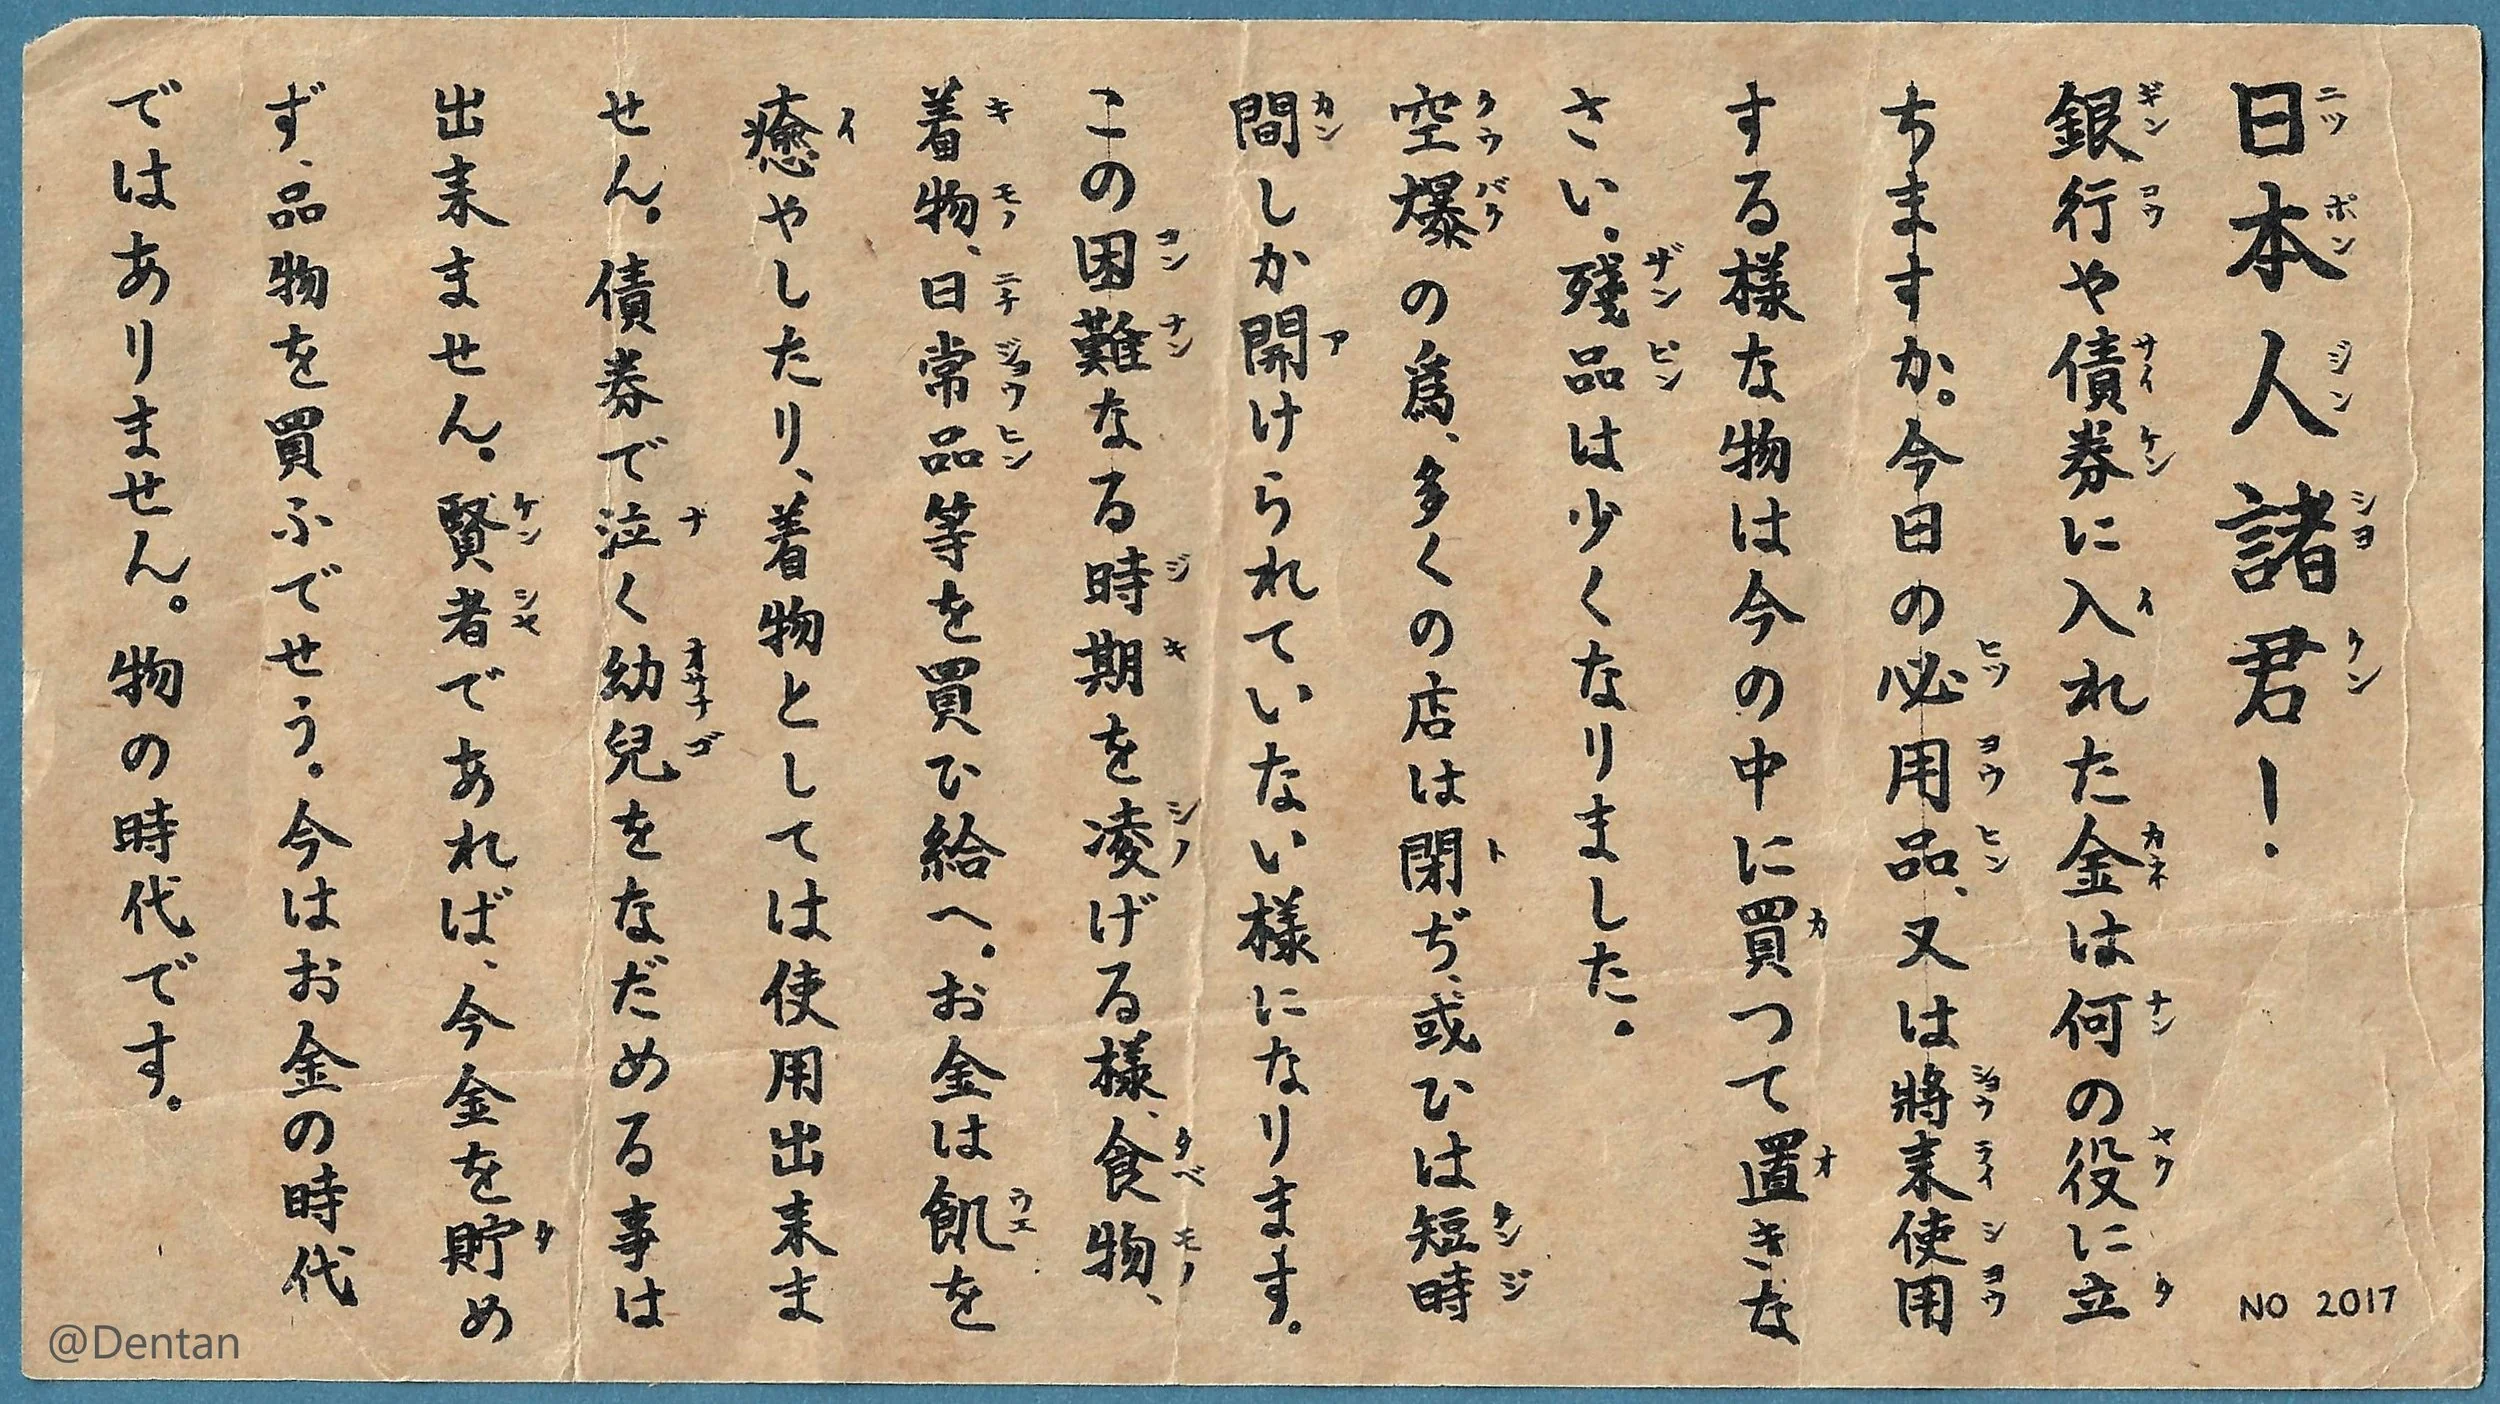 日本人諸君！
銀行や債券に入れた金は何の役に立
ちますか。今日の必用品、又は將来使用
する様な物は今の中に買つて置きな
さい。殘品は少くなりました。
空爆の爲、多くの店は閉ぢ、或ひは短時
間しか開けられていない様になります。
この困難なる時期を凌げる様、食物、
着物、日常品等を買ひ給へ。お金は飢を
癒やしたり、着物としては使用出来ま
せん。債券で泣く幼兒をなだめる事は
出来ません。賢者であれば、今金を貯め
ず、品物を買ふでせう。今はお金の時代
ではありません。物の時代です。
NO 2017
@Dentan